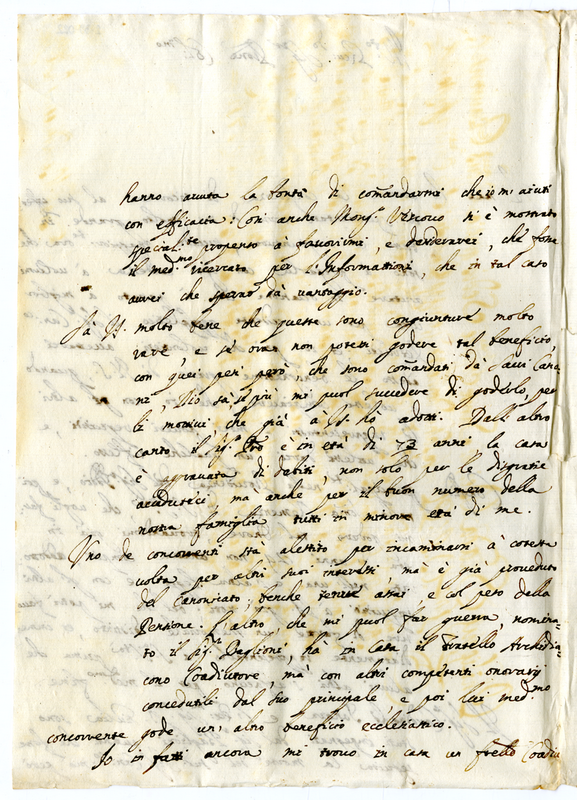 hanno avuta la bontà di comandarmi che io m'aiuti
con efficacia: Così anche Mons.r Vescovo si è mostrato
special.te propenso à favorirmi, e desidererei, che fosse
il med.mo ricercato per l'Informationi, che in tal caso
avrei che sperar dà vantaggio.
Sà V.S. molto bene che queste sono congiunture molto
rare, e se ora non potessi godere tal beneficio,
con quei pesi però, che sono comandati dà Sacri Cano-
ni, Dio sà se più mi puol succedere di goderlo, per
li motivi che già à V.S. hò adotti. Dall'altro
canto il sig.r è in età di 73 anni la casa
è aggravata di debiti, non solo per le disgrazie
accadutici, mà anche per il buon numero della
nostra famiglia tutti in minore età di me.
Uno de concorrenti stà alestito per incaminarsi à cotesta
volta per altri suoi interessi, mà è già proveduto
del Canonicato, benche tenue assai, e col peso della
Pensione. L'altro che mi puol far guerra, nomina-
to il sig.r Baglioni, hà in casa il fratello Archidia-
cono Coadiutore, mà con altri competenti onorarij
concedutili dal suo principale, e poi lui med.mo
concorrente gode un'altro beneficio eclesiastico.
Io in fatti ancora mi trovo in casa un fratello Coadiu